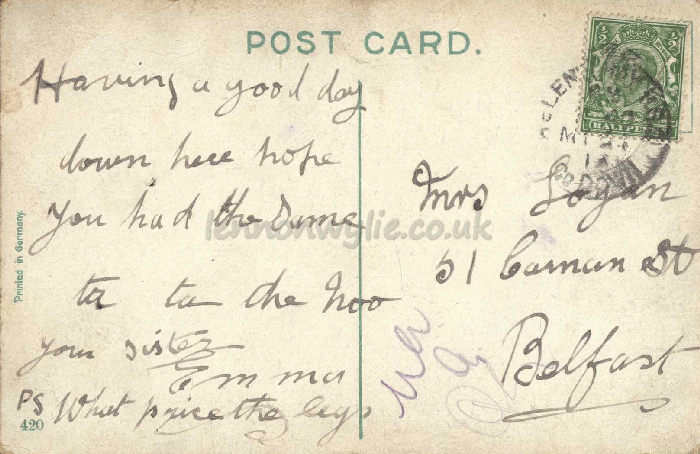 POST CARD.
Having a good day
down here hope
you had the same
ta ta the noo
your sister
Emma
PS What price the legs
Mrs Logan
51 Carnan St
Belfast
Printed in Germany.
420
lennonwylie.co.uk
HALFPENNY